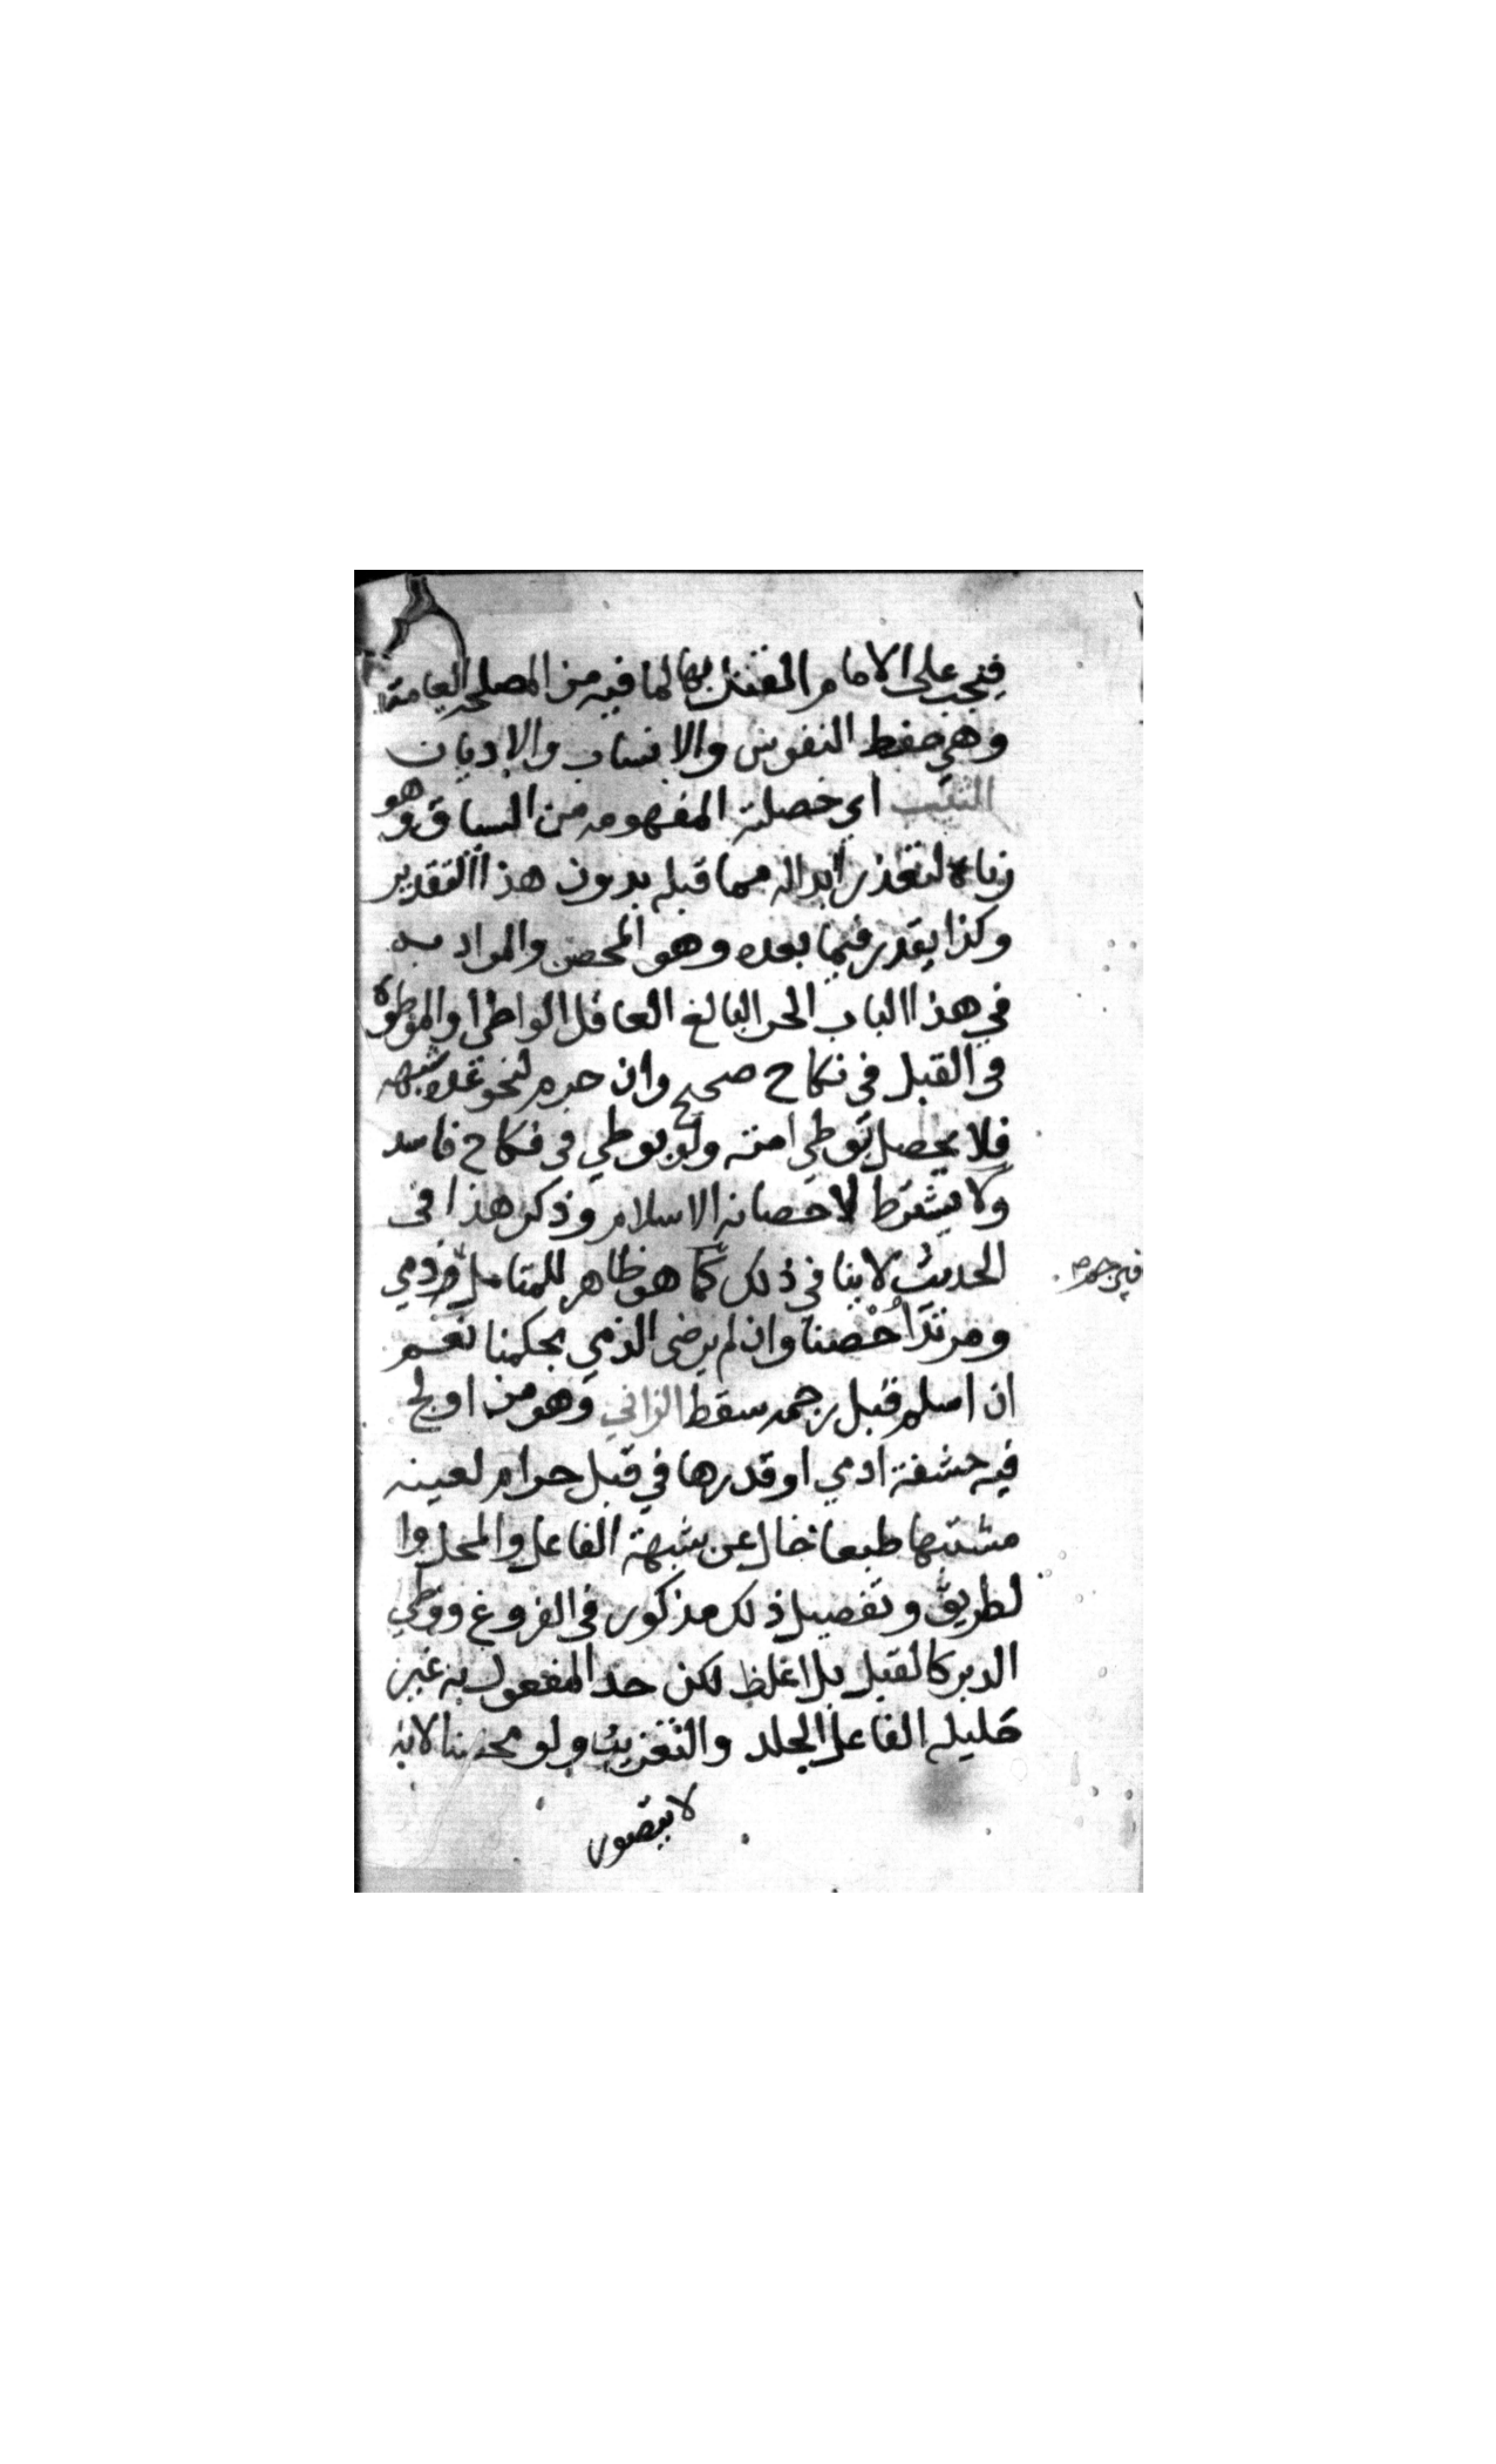 فيجب على الامام القتل بها لما فيه من المصلحة العامة
وهي حفظ النفوس والانساب والاديان
الثيب اي خصلته المفهومه من السياق وهو
زناه لتعذر ابداله مما قبله بدون هذا التقدير
وكذا يقدر فيما بعده وهو المحصن والمراد به
في هذا الباب الحر البالغ العاقل الواطئ او الموطوة
في القبل في نكاح صحيح وان حرم لنحو عدة شبهه
فلا يحصل بوطي امته ولو بوطي في نكاح فاسد
ولا يشترط لاحصانه الاسلام وذكر هذا في
الحديث لا ينافي ذلك كما هو ظاهر للمتامل فذمي
فيرجم
ومرتد أُحْصنا وان لم يرضى الذمي بحكمنا نعم
ان اسلم قبل رجمه سقط الزاني وهو من اولج
فيه حشفة ادمي او قدرها في قبل حرام لعينه
مشتهى طبعا خال عن شبهة الفاعل والمحل وا
لطريق وتفصيل ذلك مذكور في الفروع ووطي
الدبر كالقبل بل اغلظ لكن حد المفعول به غير
حليلة الفاعل الجلد والتغريب ولو محصنا لانه
لا يتصور